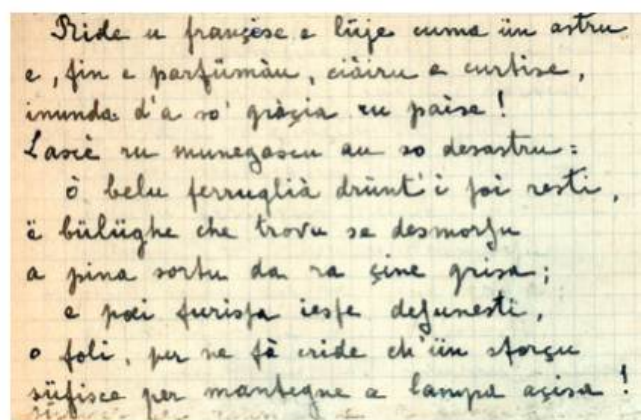 Ride u françése e lüje cuma ün astru
e, fin e parfümàu, ciàiru e curtise,
inunda d'a so' gràçia ru paise!
Lascè ru munegascu au so desastru:
ò belu ferruglià drünt' i poi resti,
ë bülüghe che trovu se desmorfu
a pina sortu da ra çine grisa;
e poei furispa iespe defunesti,
o foli, per ne fà cride ch'ün sforçu
süfisce per mantegne a lampa açisa!